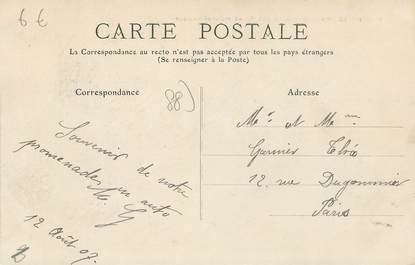 6 €
CARTE POSTALE
La Correspondance au recto n'est pas acceptée par tous les pays étrangers
(Se renseigner à la Poste)
Correspondance
88)
Adresse
Souvenir de notre
promenade en auto
12 Août 07.
Mr et Mme
Garnier
12, rue Dugommier
Paris